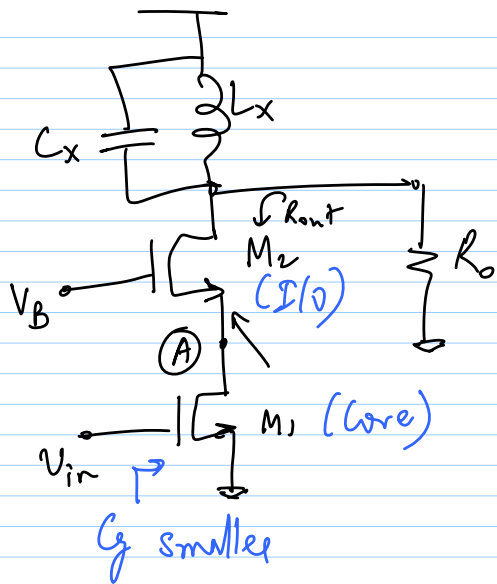 Lx
Cx
Rout
M2
(I/O)
Ro
VB
A
M1 (Core)
Vin
Cg smaller